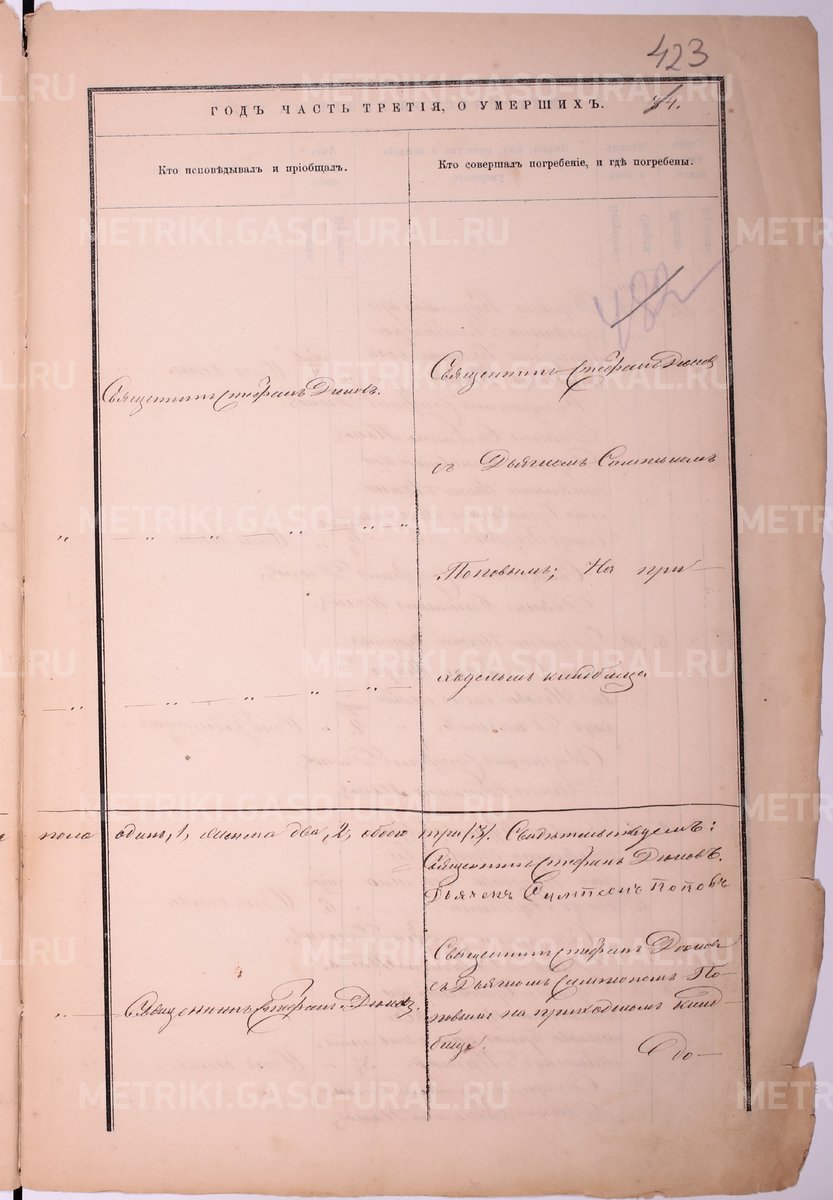 423
ГОДЪ ЧАСТЬ ТРЕТІЯ, О УМЕРШИХЪ.
Кто исповѣдывалъ и пріобщалъ.
Кто совершалъ погребеніе, и гдѣ погребены.
Священникъ Стефанъ Дюковъ.
Священникъ Стефанъ Дюковъ
съ Дьячкомъ
Поповымъ; На при-
ходскомъ кладбищѣ
пола одинъ, 1, женска два, 2, обоего три /3/. Свидѣтельствуемъ:
Священникъ Стефанъ Дюковъ.
Дьячекъ Поповъ
Священникъ Стефанъ Дюковъ.
Священникъ Стефанъ Дюковъ
съ Дьячкомъ По-
повымъ на приходскомъ клад-
бищѣ.
METRIKI.GASO-URAL.RU